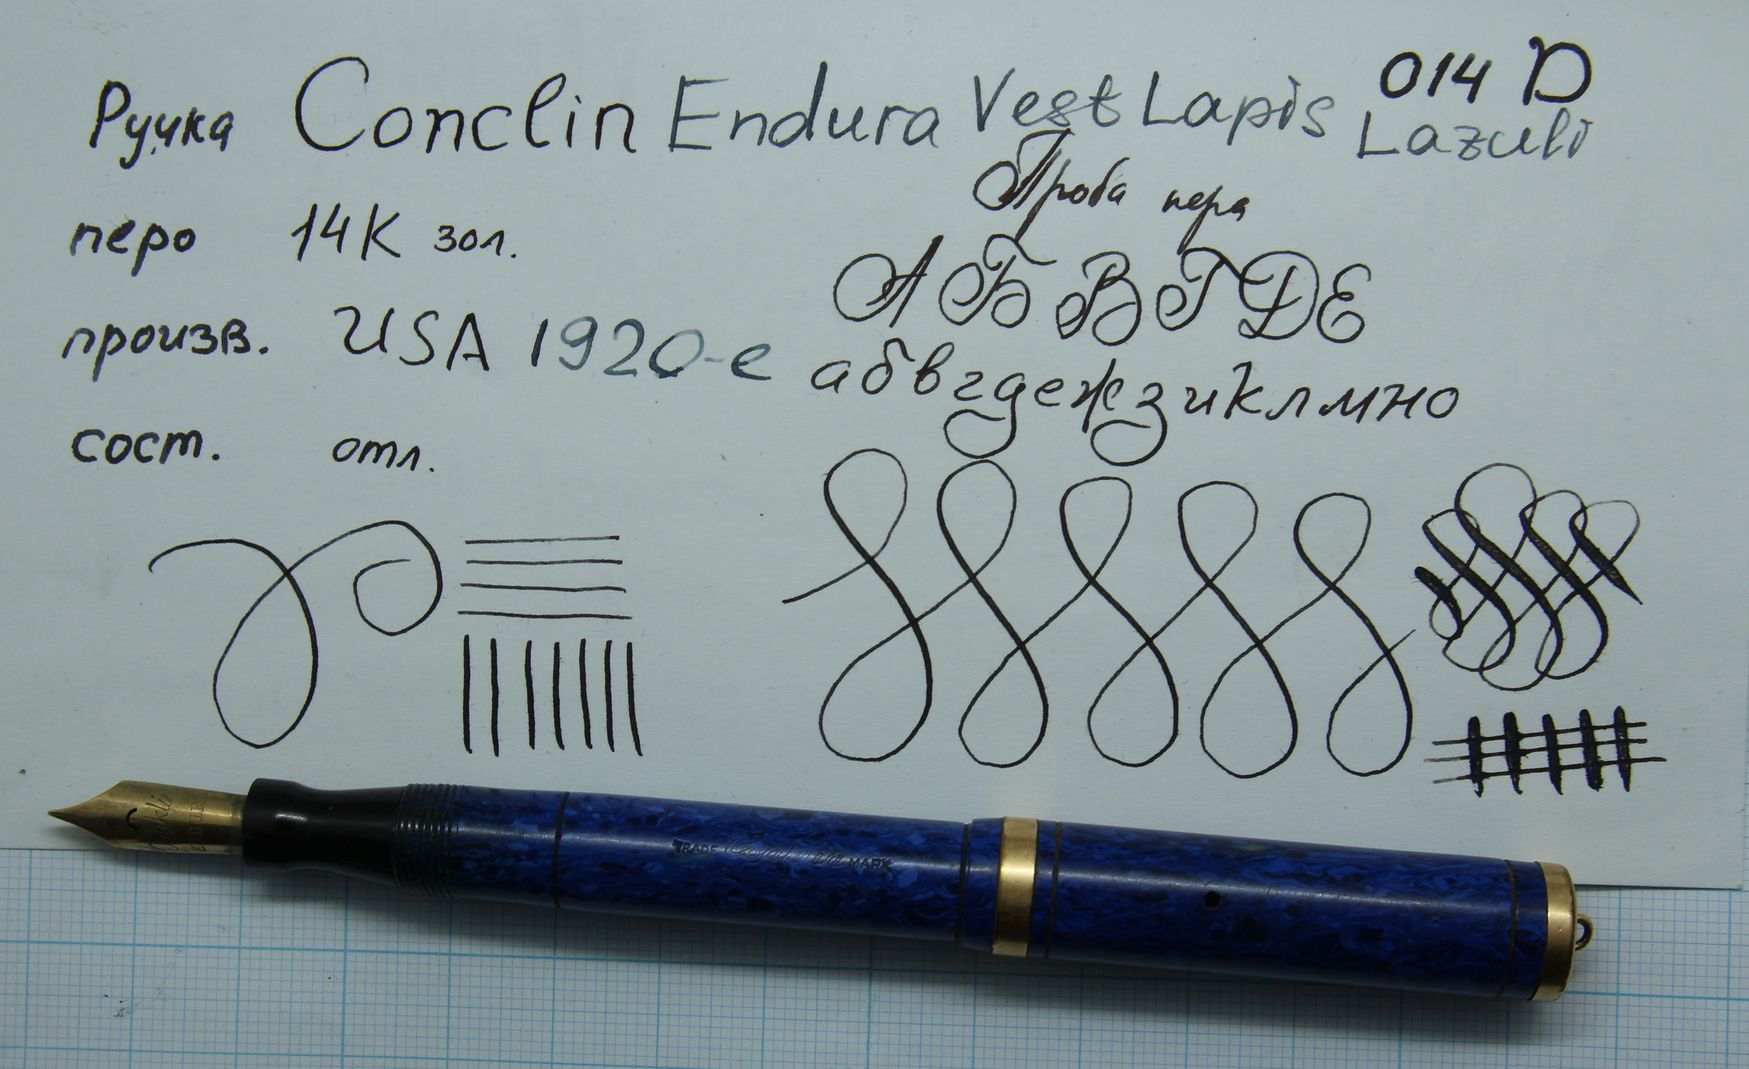 Ручка Conclin Endura Vest Lapis Lazuli
014 D
Проба пера
перо 14К зол.
АБВГДЕ
произв. USA 1920-е
абвгдежзиклмно
сост. отл.
TRADE MARK